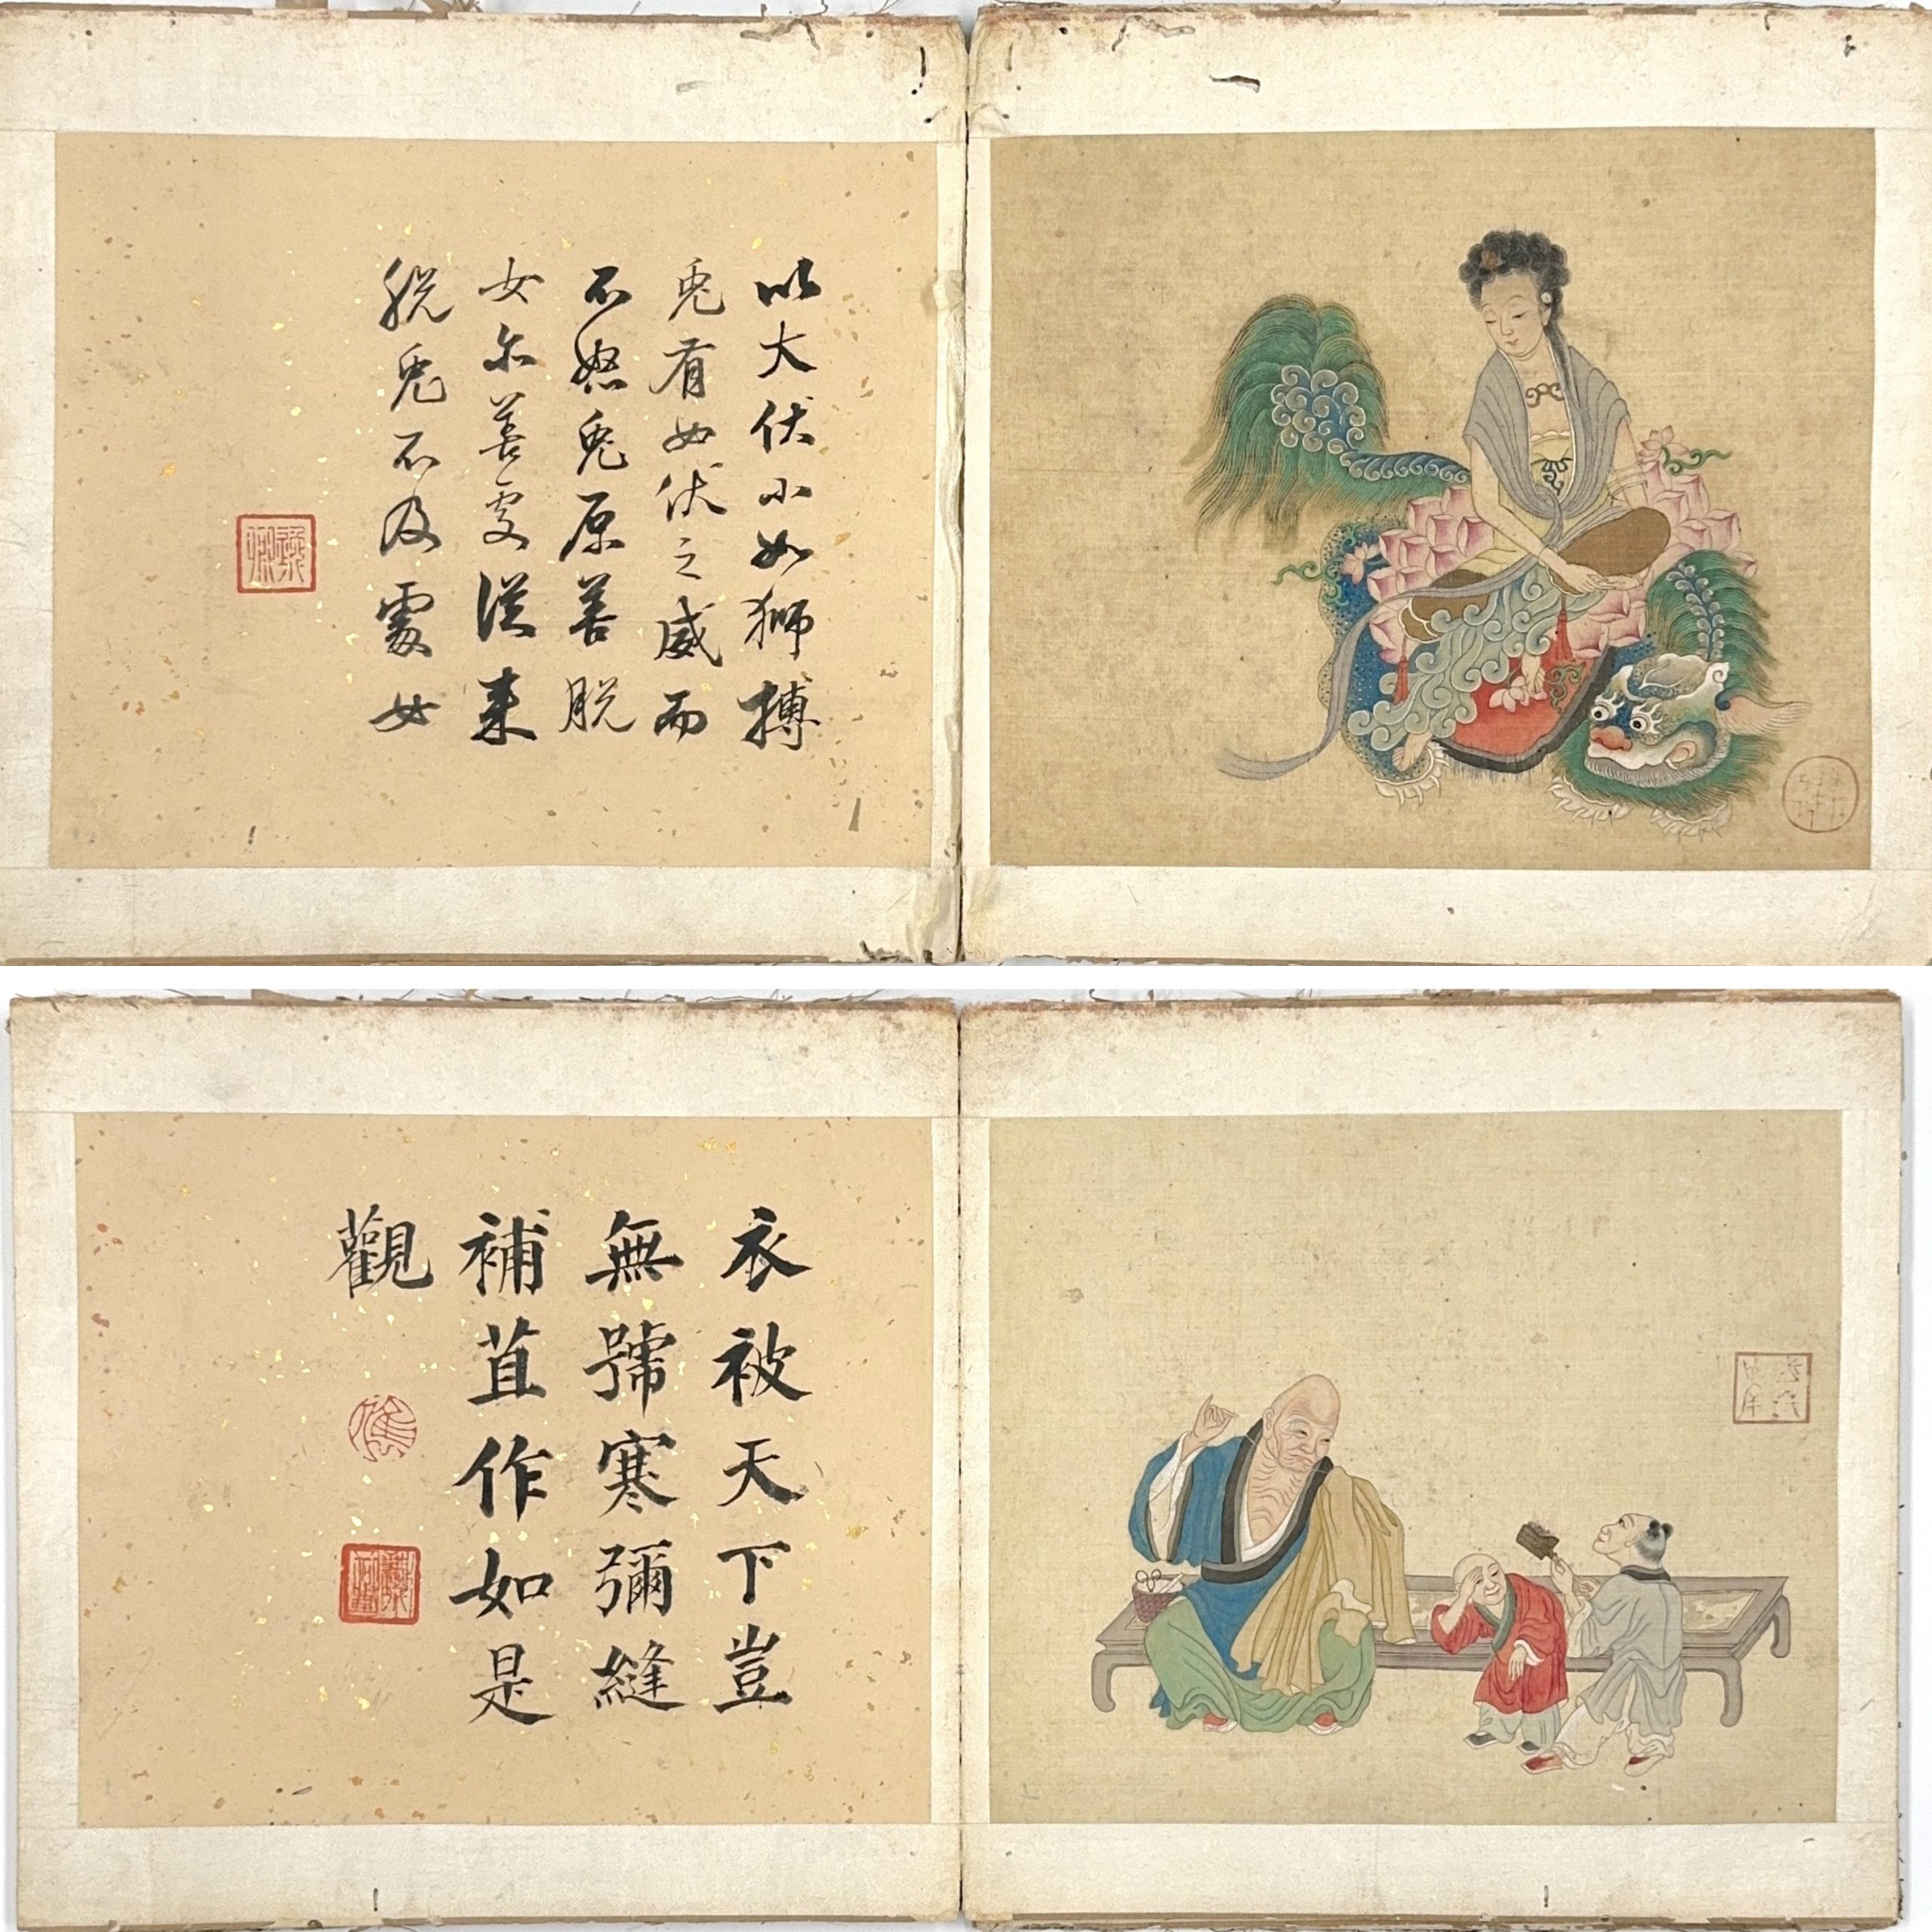 以大伏小如獅搏
兎有如伏之威而
不怒兎原善脫
女尓善変從来
脫兎不及處女
衣被天下豈
無號寒彌縫
補苴作如是
觀